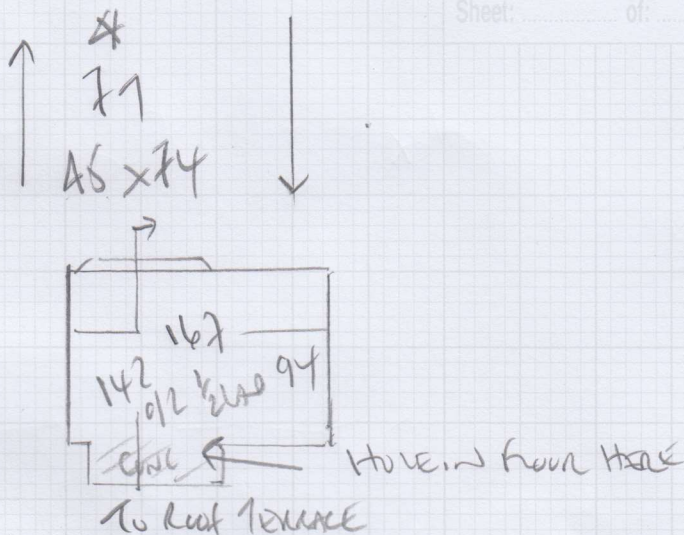 Sheet: of:
71
A5 x 74
167
142
94
CONC
HOLE IN FLOOR HERE
TO ROOF TERRACE